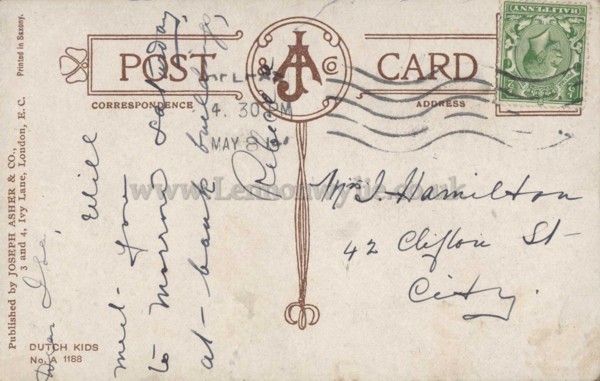 POST CARD
& Co
AJ
CORRESPONDENCE
ADDRESS
HALFPENNY
4. 30 PM
MAY 8
Printed in Saxony.
Published by JOSEPH ASHER & CO.,
3 and 4, Ivy Lane, London, E. C.
DUTCH KIDS
No. A 1188
Dear
Will
meet you
to morrow Saturday
at bank buildings,
Rebecca
Mrs J. Hamilton
42 Clifton St
City.
www.Lennonwylie.co.uk